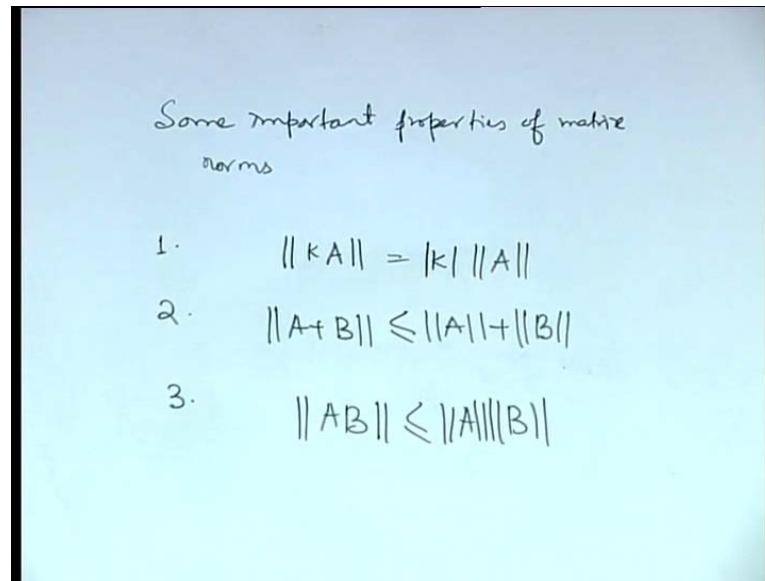 Some important properties of matrix
norms
1. ||KA|| = |K| ||A||
2. ||A+B|| ≤ ||A||+||B||
3. ||AB|| ≤ ||A||||B||